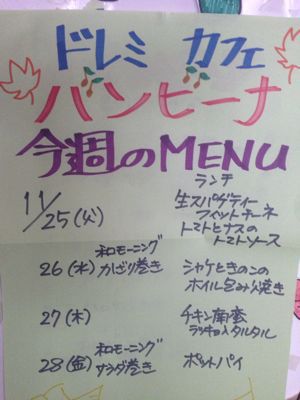 ドレミ カフェ
バンビーナ
今週のMENU
ランチ
11/25(火)
生スパゲティー
フィットチーネ
トマトとナスの
トマトソース
和モーニング
26(水) カルビ巻き
シャケときのこの
ホイル包み焼き
27(木)
チキン南蛮
ラッキョ入タルタル
和モーニング
28(金) サラダ巻き
ポットパイ